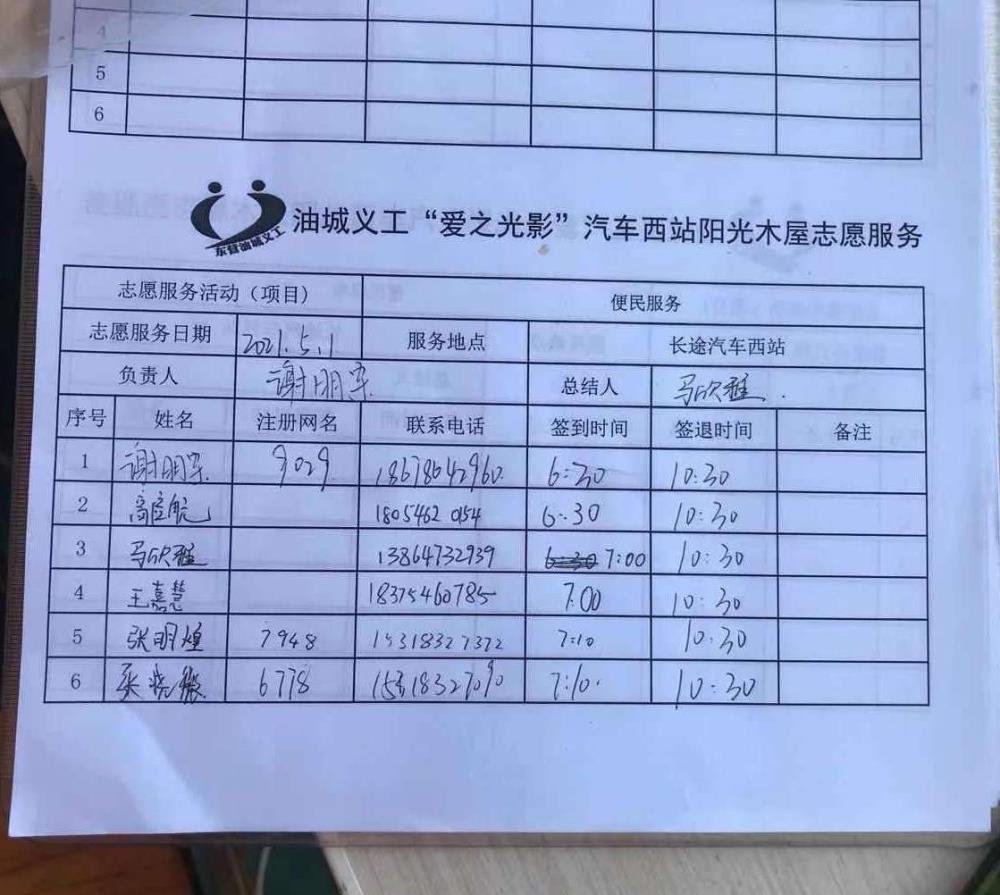 4
5
6
东营油城义工
油城义工“爱之光影”汽车西站阳光木屋志愿服务
志愿服务活动（项目） 便民服务
志愿服务日期 2021.5.1 服务地点 长途汽车西站
负责人 谢明 总结人 马欣雅.
序号 姓名 注册网名 联系电话 签到时间 签退时间 备注
1 谢明 9029 18678642960. 6:30 10:30
2 高 航 1805462 0154 6:30 10:30
3 马欣雅 13864732939 6:30 7:00 10:30
4 王嘉慧 18375460785 7:00 10:30
5 张明煌 7948 15318327372 7:10 10:30
6 张晓 6778 7:10. 10:30